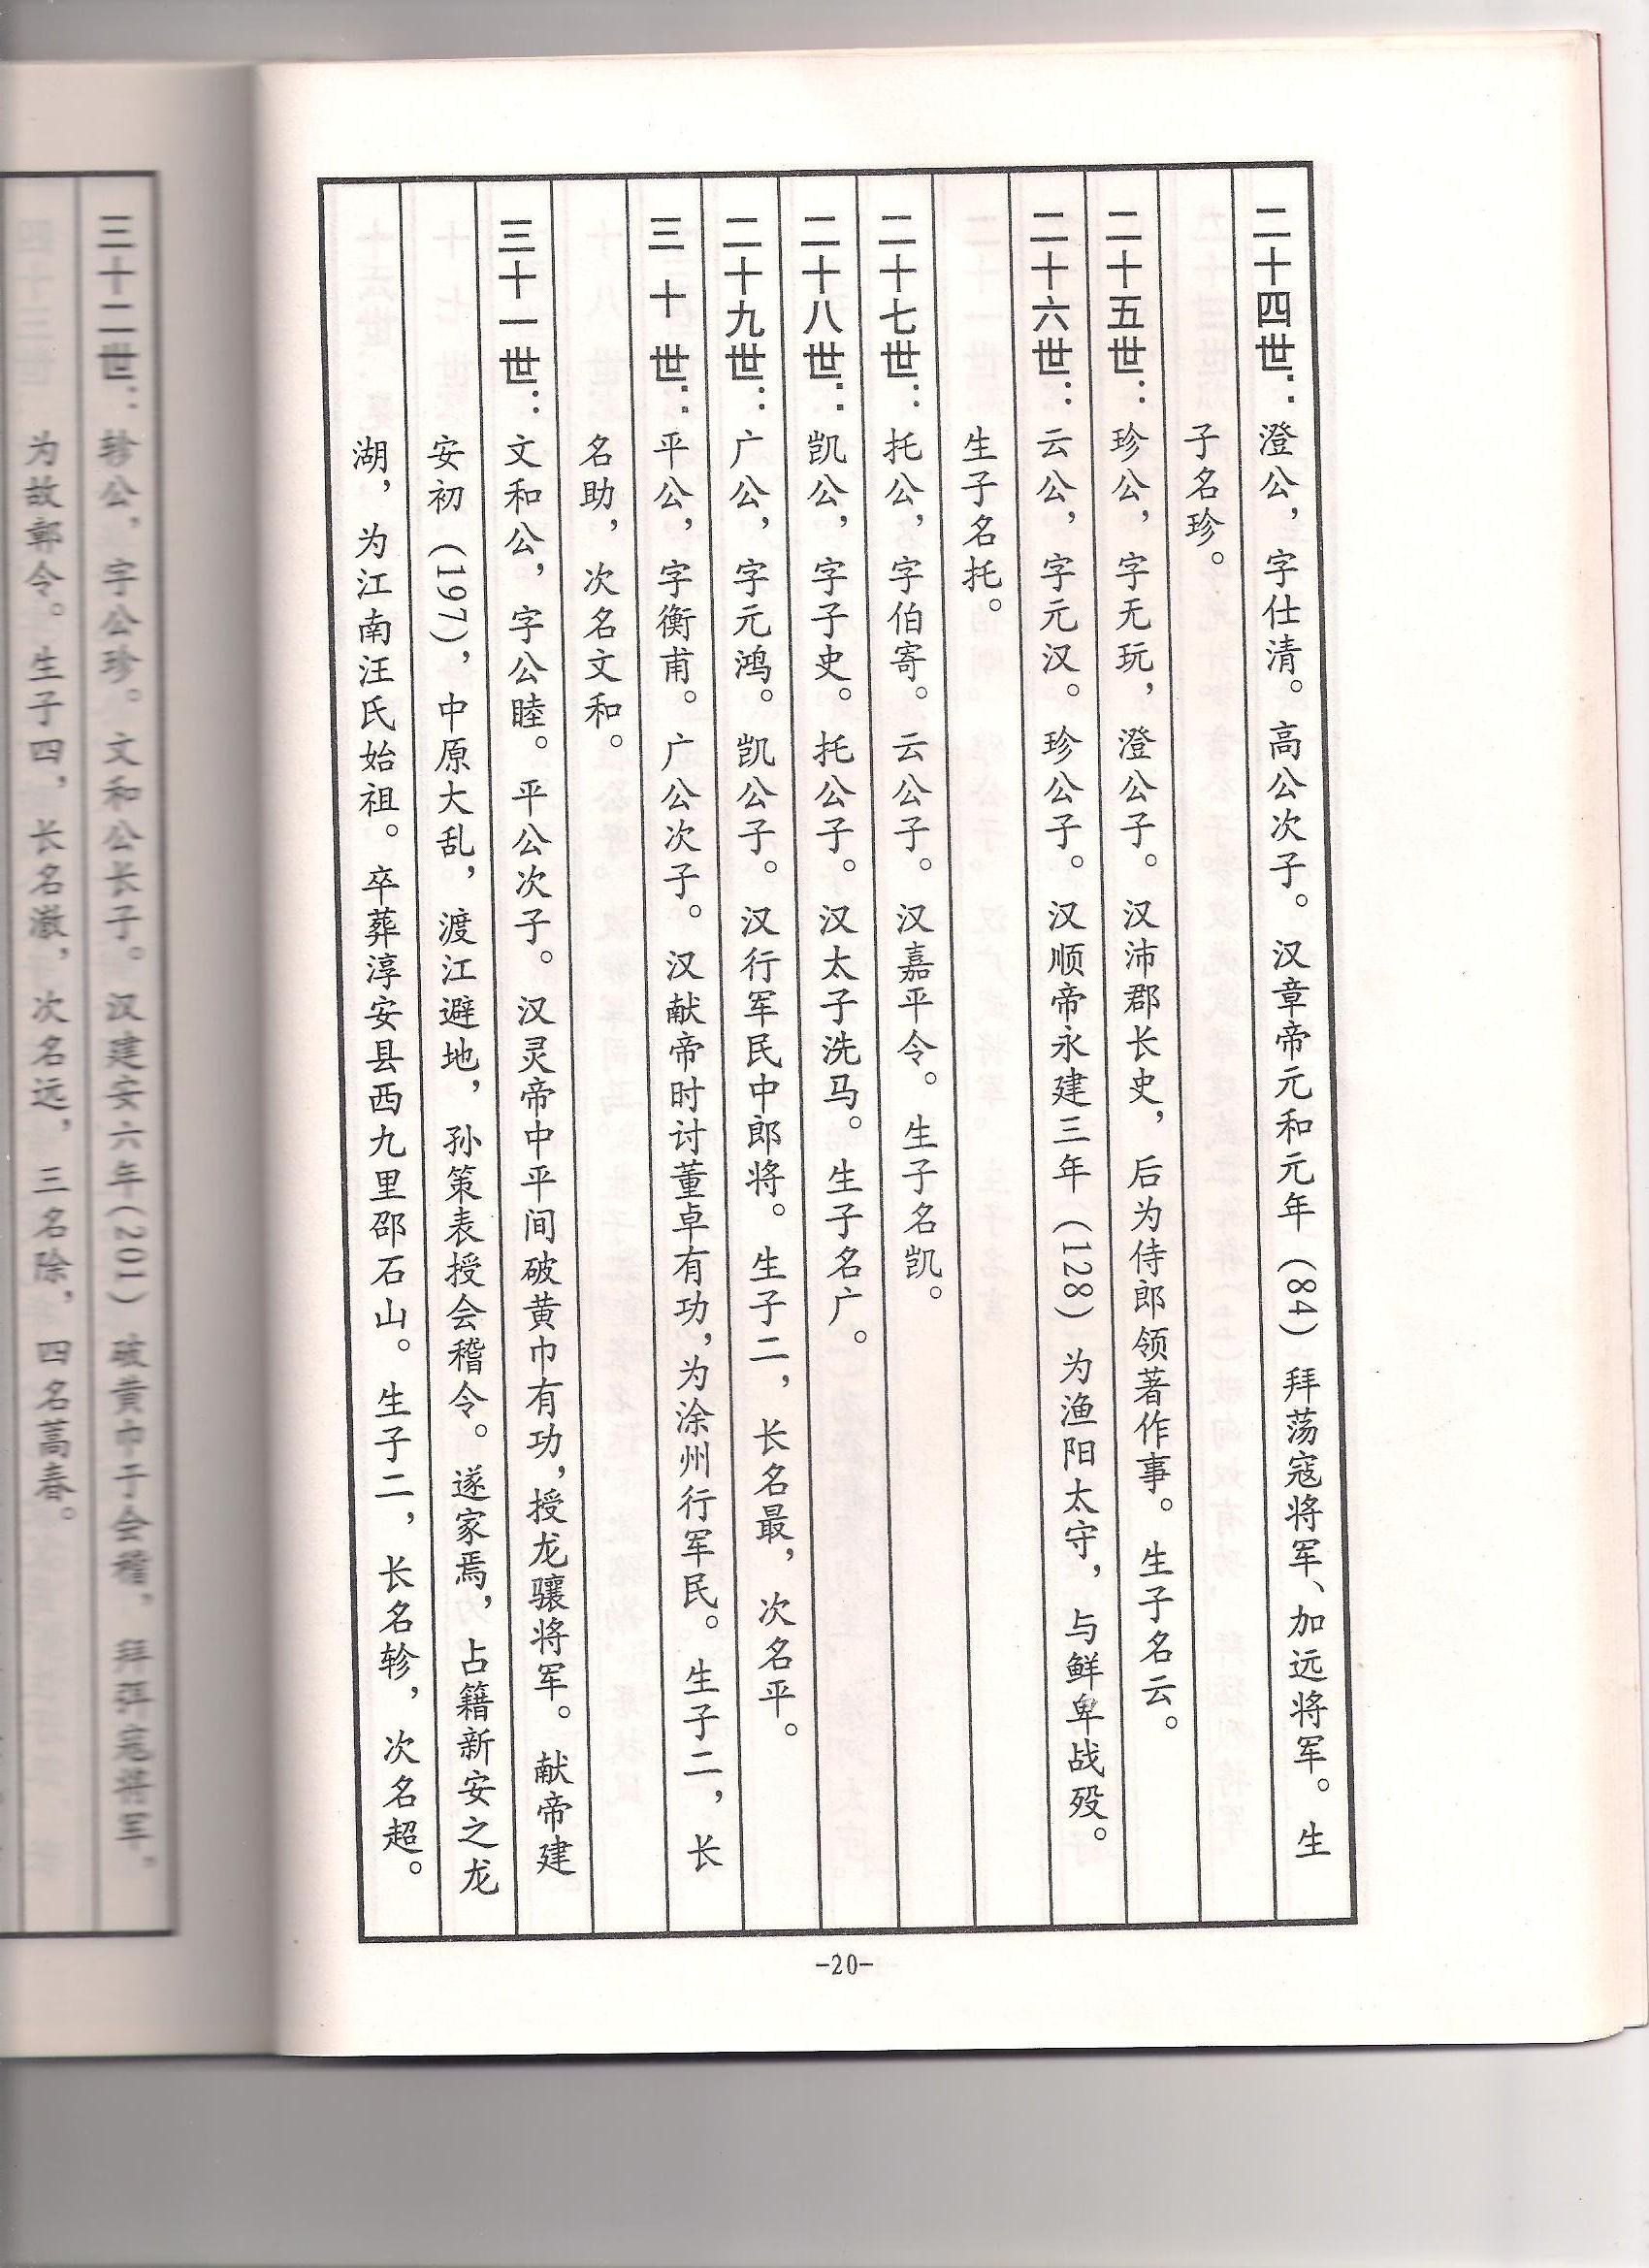 二十四世：澄公，字仕清。高公次子。汉章帝元和元年（84）拜荡寇将军、加远将军。生
子名珍。
二十五世：珍公，字无玩，澄公子。汉沛郡长史，后为侍郎领著作事。生子名云。
二十六世：云公，字元汉。珍公子。汉顺帝永建三年（128）为渔阳太守，与鲜卑战殁。
生子名托。
二十七世：托公，字伯寄。云公子。汉嘉平令。生子名凯。
二十八世：凯公，字子史。托公子。汉太子洗马。生子名广。
二十九世：广公，字元鸿。凯公子。汉行军民中郎将。生子二，长名最，次名平。
三十世：平公，字衡甫。广公次子。汉献帝时讨董卓有功，为涂州行军民。生子二，长
名助，次名文和。
三十一世：文和公，字公睦。平公次子。汉灵帝中平间破黄巾有功，授龙骧将军。献帝建
安初（197），中原大乱，渡江避地，孙策表授会稽令。遂家焉，占籍新安之龙
湖，为江南汪氏始祖。卒葬淳安县西九里邵石山。生子二，长名轸，次名超。
-20-
三十二世：轸公，字公珍。文和公长子。汉建安六年（201）破黄巾于会稽，拜弭寇将军。
为故鄣令。生子四，长名澈，次名远，三名除，四名蒿春。